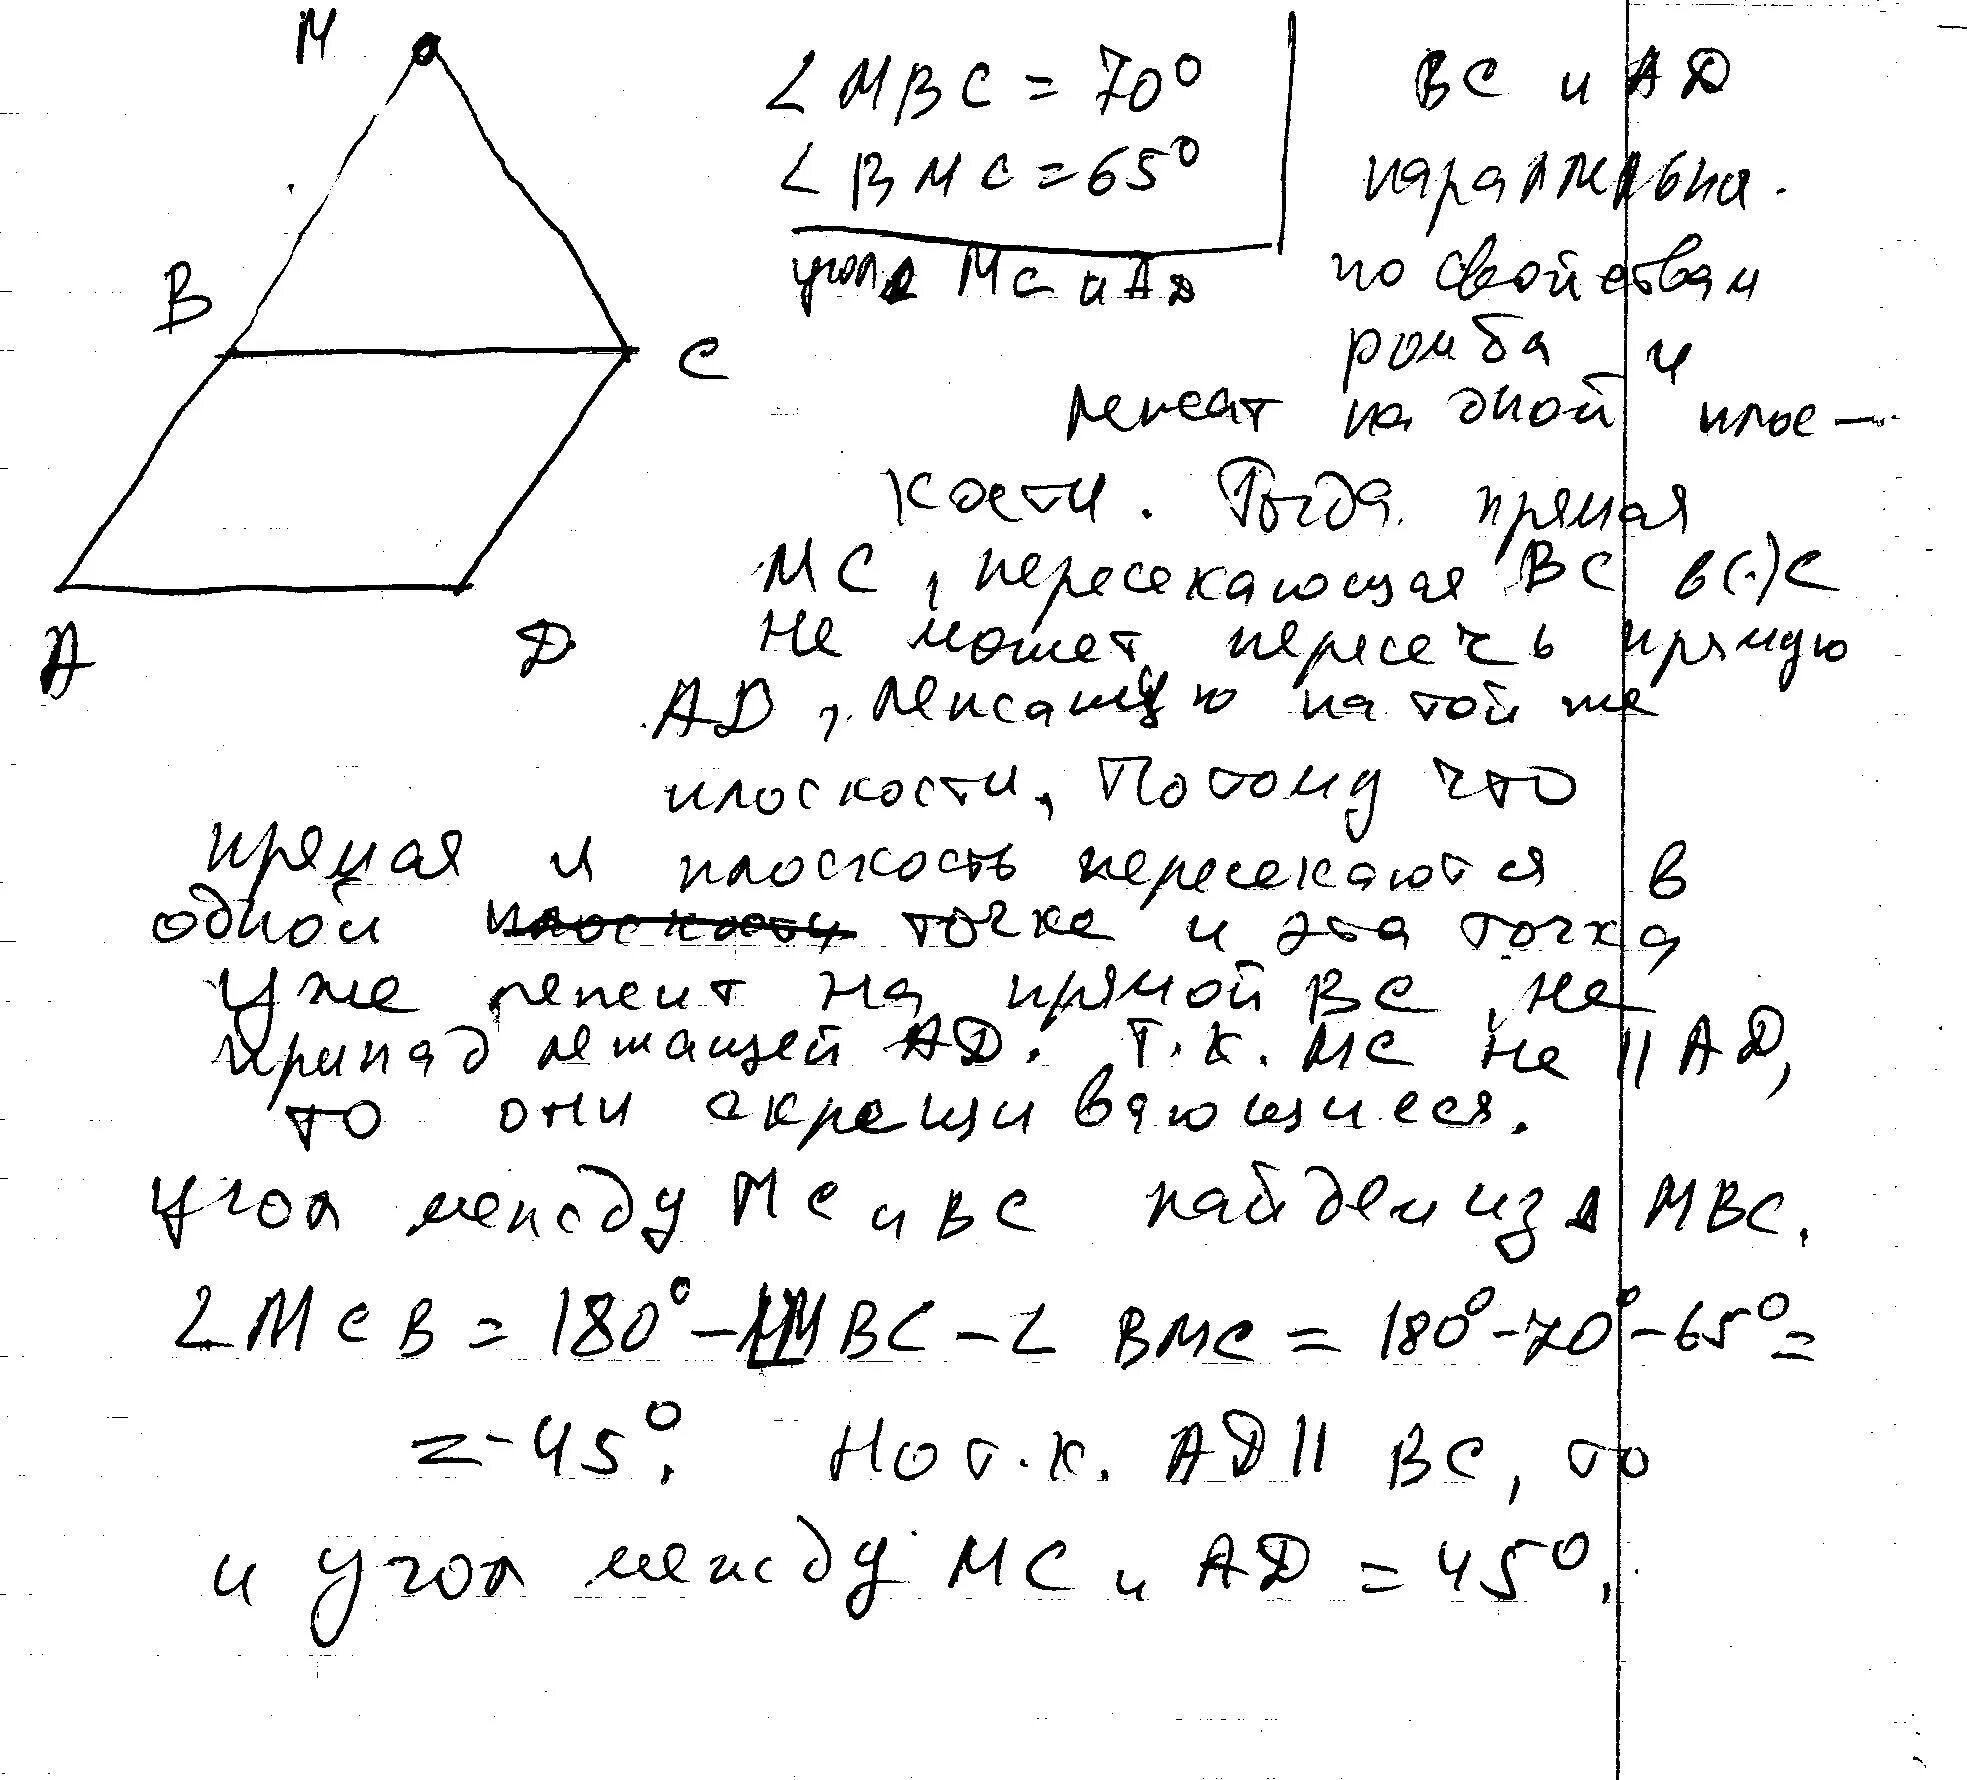 М
∠MBC = 70°
∠BMC = 65°
угол MC и AD
B
C
A
D
BC и AD
параллельна.
по свойствам
ромба и
лежат на одной плос-
кости. Тогда прямая
MC, пересекающая BC в (·) C
не может пересечь прямую
AD, лежащую на той же
плоскости, Потому что
прямая и плоскость пересекаются в
одной точке и эта точка
уже лежит на прямой BC, не
принадлежащей AD. Т.к. MC не || AD,
то они скрещивающиеся.
Угол между MC и BC найдем из Δ MBC.
∠MCB = 180° - ∠MBC - ∠BMC = 180° - 70° - 65° =
= 45°. Но т.к. AD || BC, то
и угол между MC и AD = 45°.